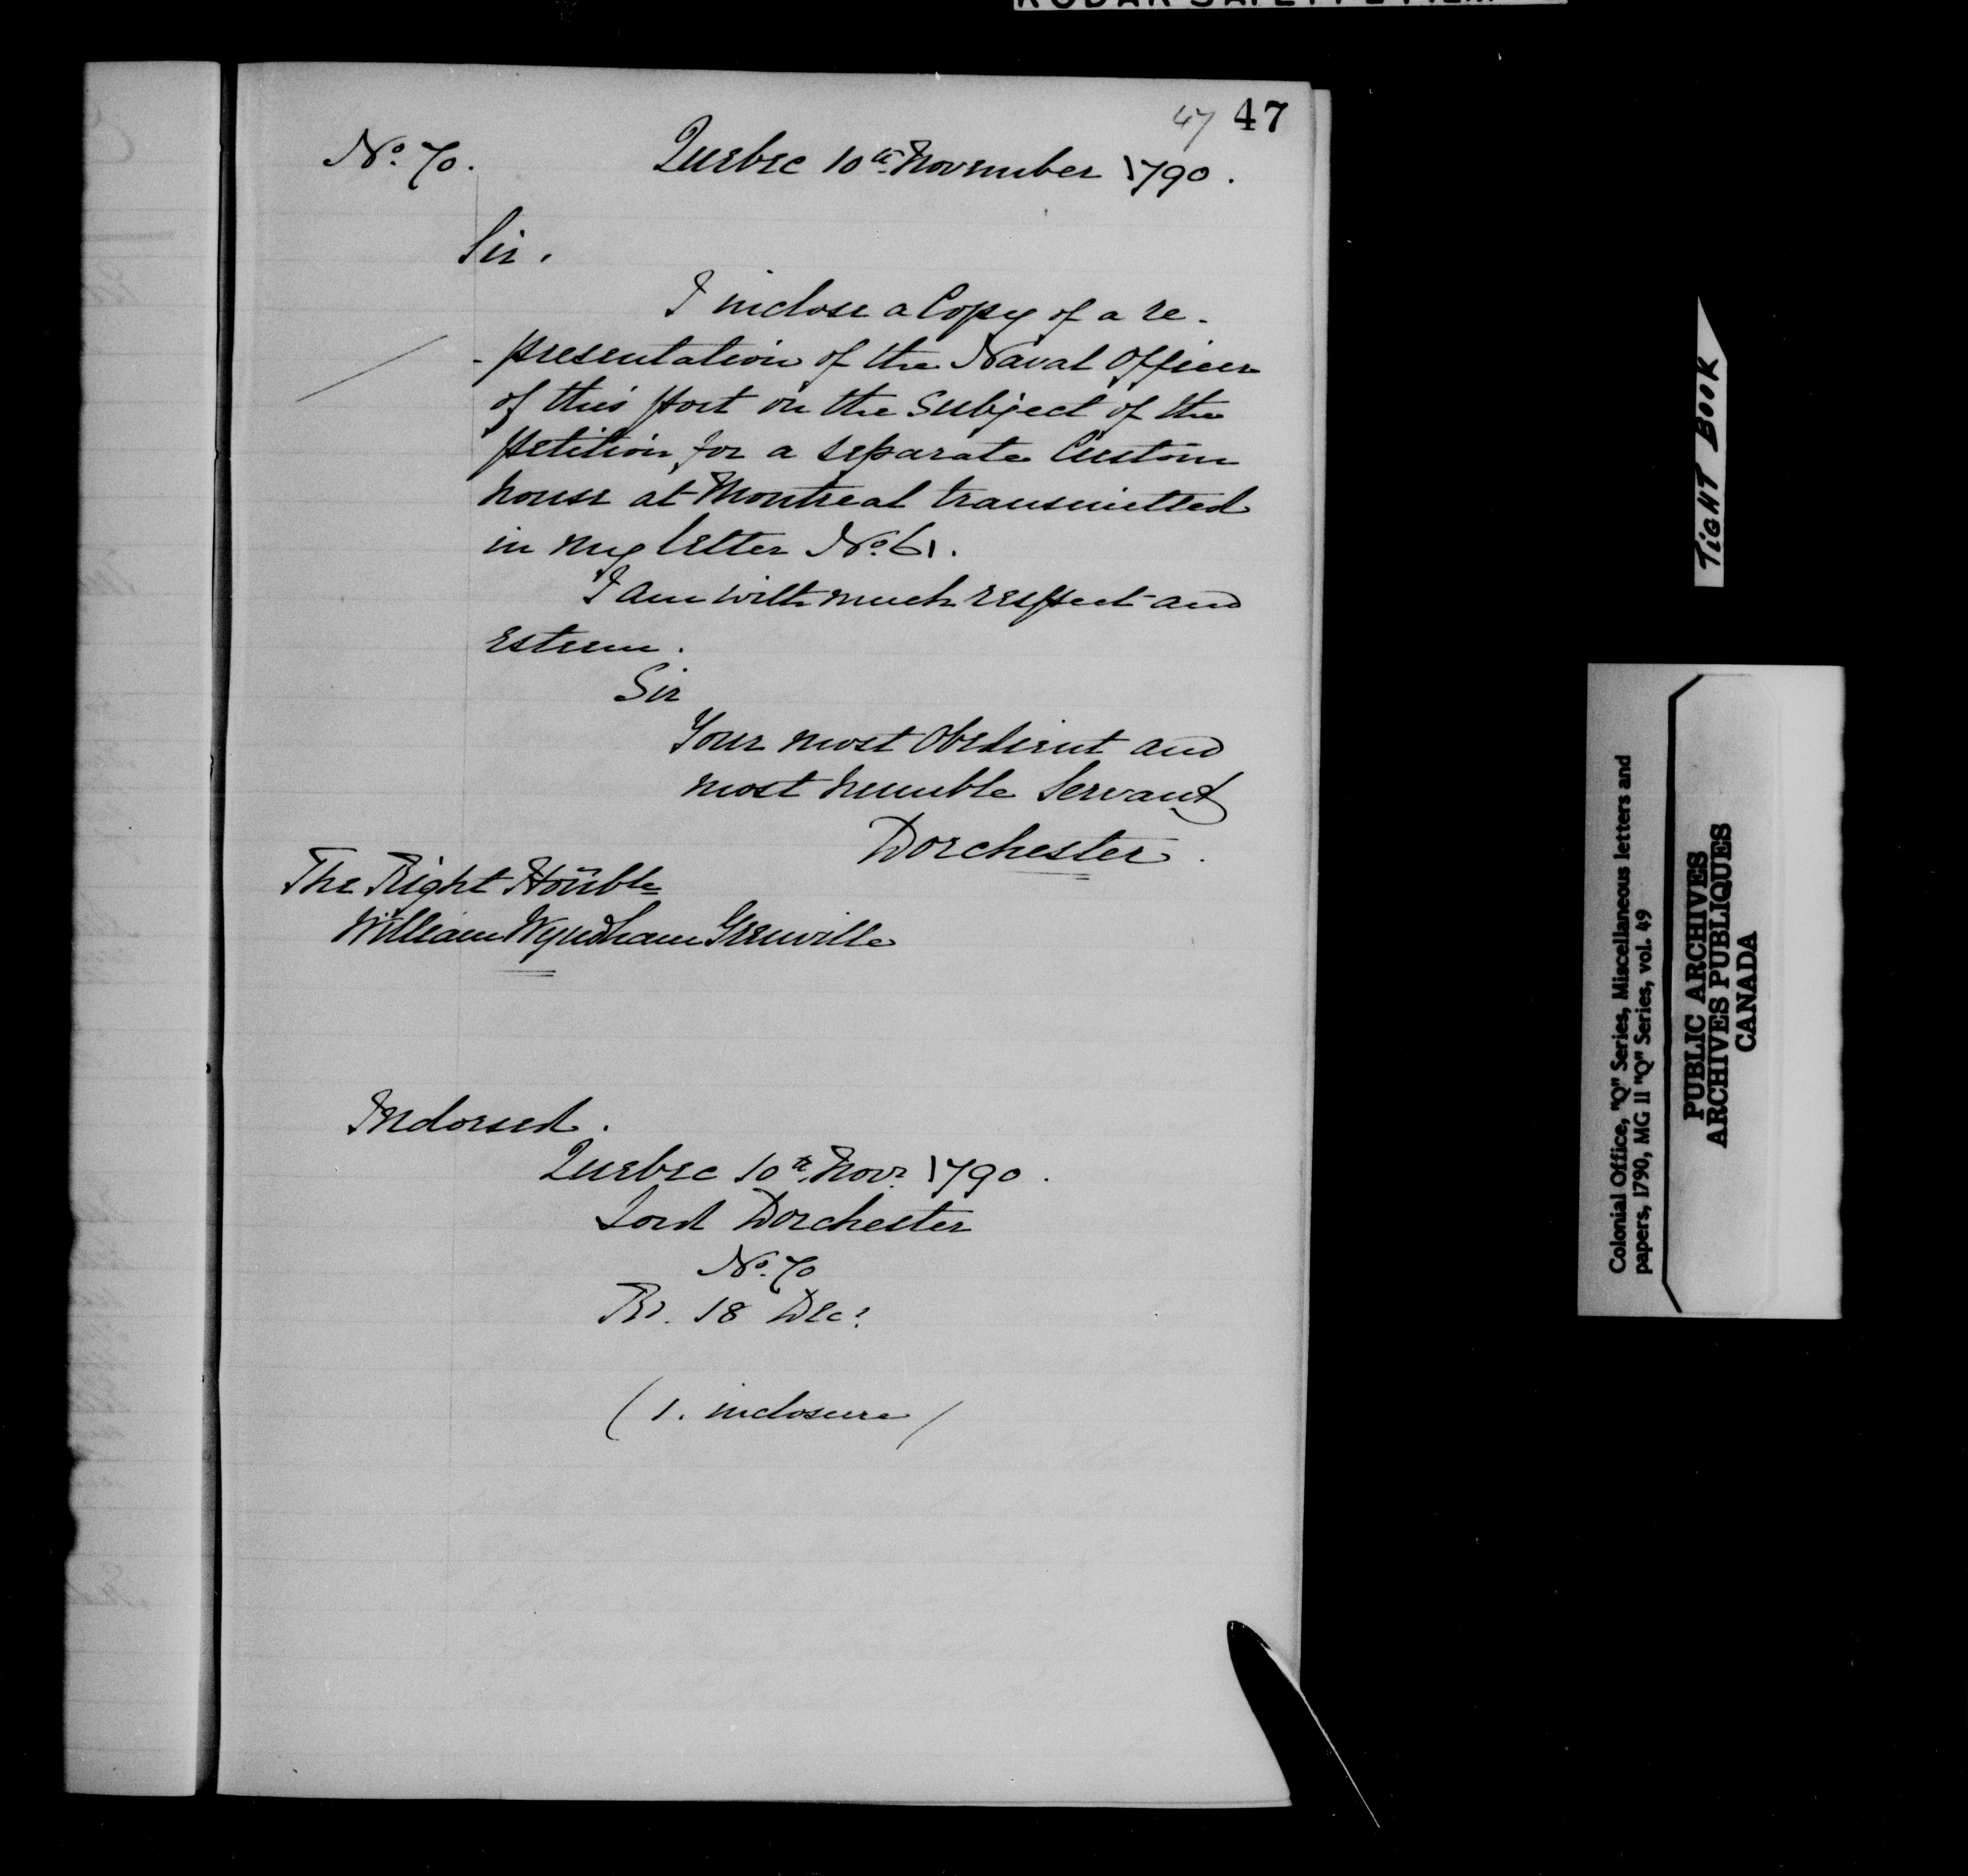 47 47
No. 70. Quebec 10th November 1790.
Sir,
I inclose a Copy of a re-
-presentation of the Naval Officer
of this Port on the Subject of the
Petition for a separate Custom
house at Montreal transmitted
in my letter No. 61.
I am with much respect and
esteem.
Sir
Your most Obedient and
most humble Servant
Dorchester.
The Right Honble
William Wyndham Grenville
Indorsed.
Quebec 10th Novr 1790.
Lord Dorchester
No. 70
Rr. 18 Decr
(1. inclosure)
TIGHT BOOK
Colonial Office, "Q" Series, Miscellaneous letters and
papers, 1790, MG 11 "Q" Series, vol. 49
PUBLIC ARCHIVES
ARCHIVES PUBLIQUES
CANADA